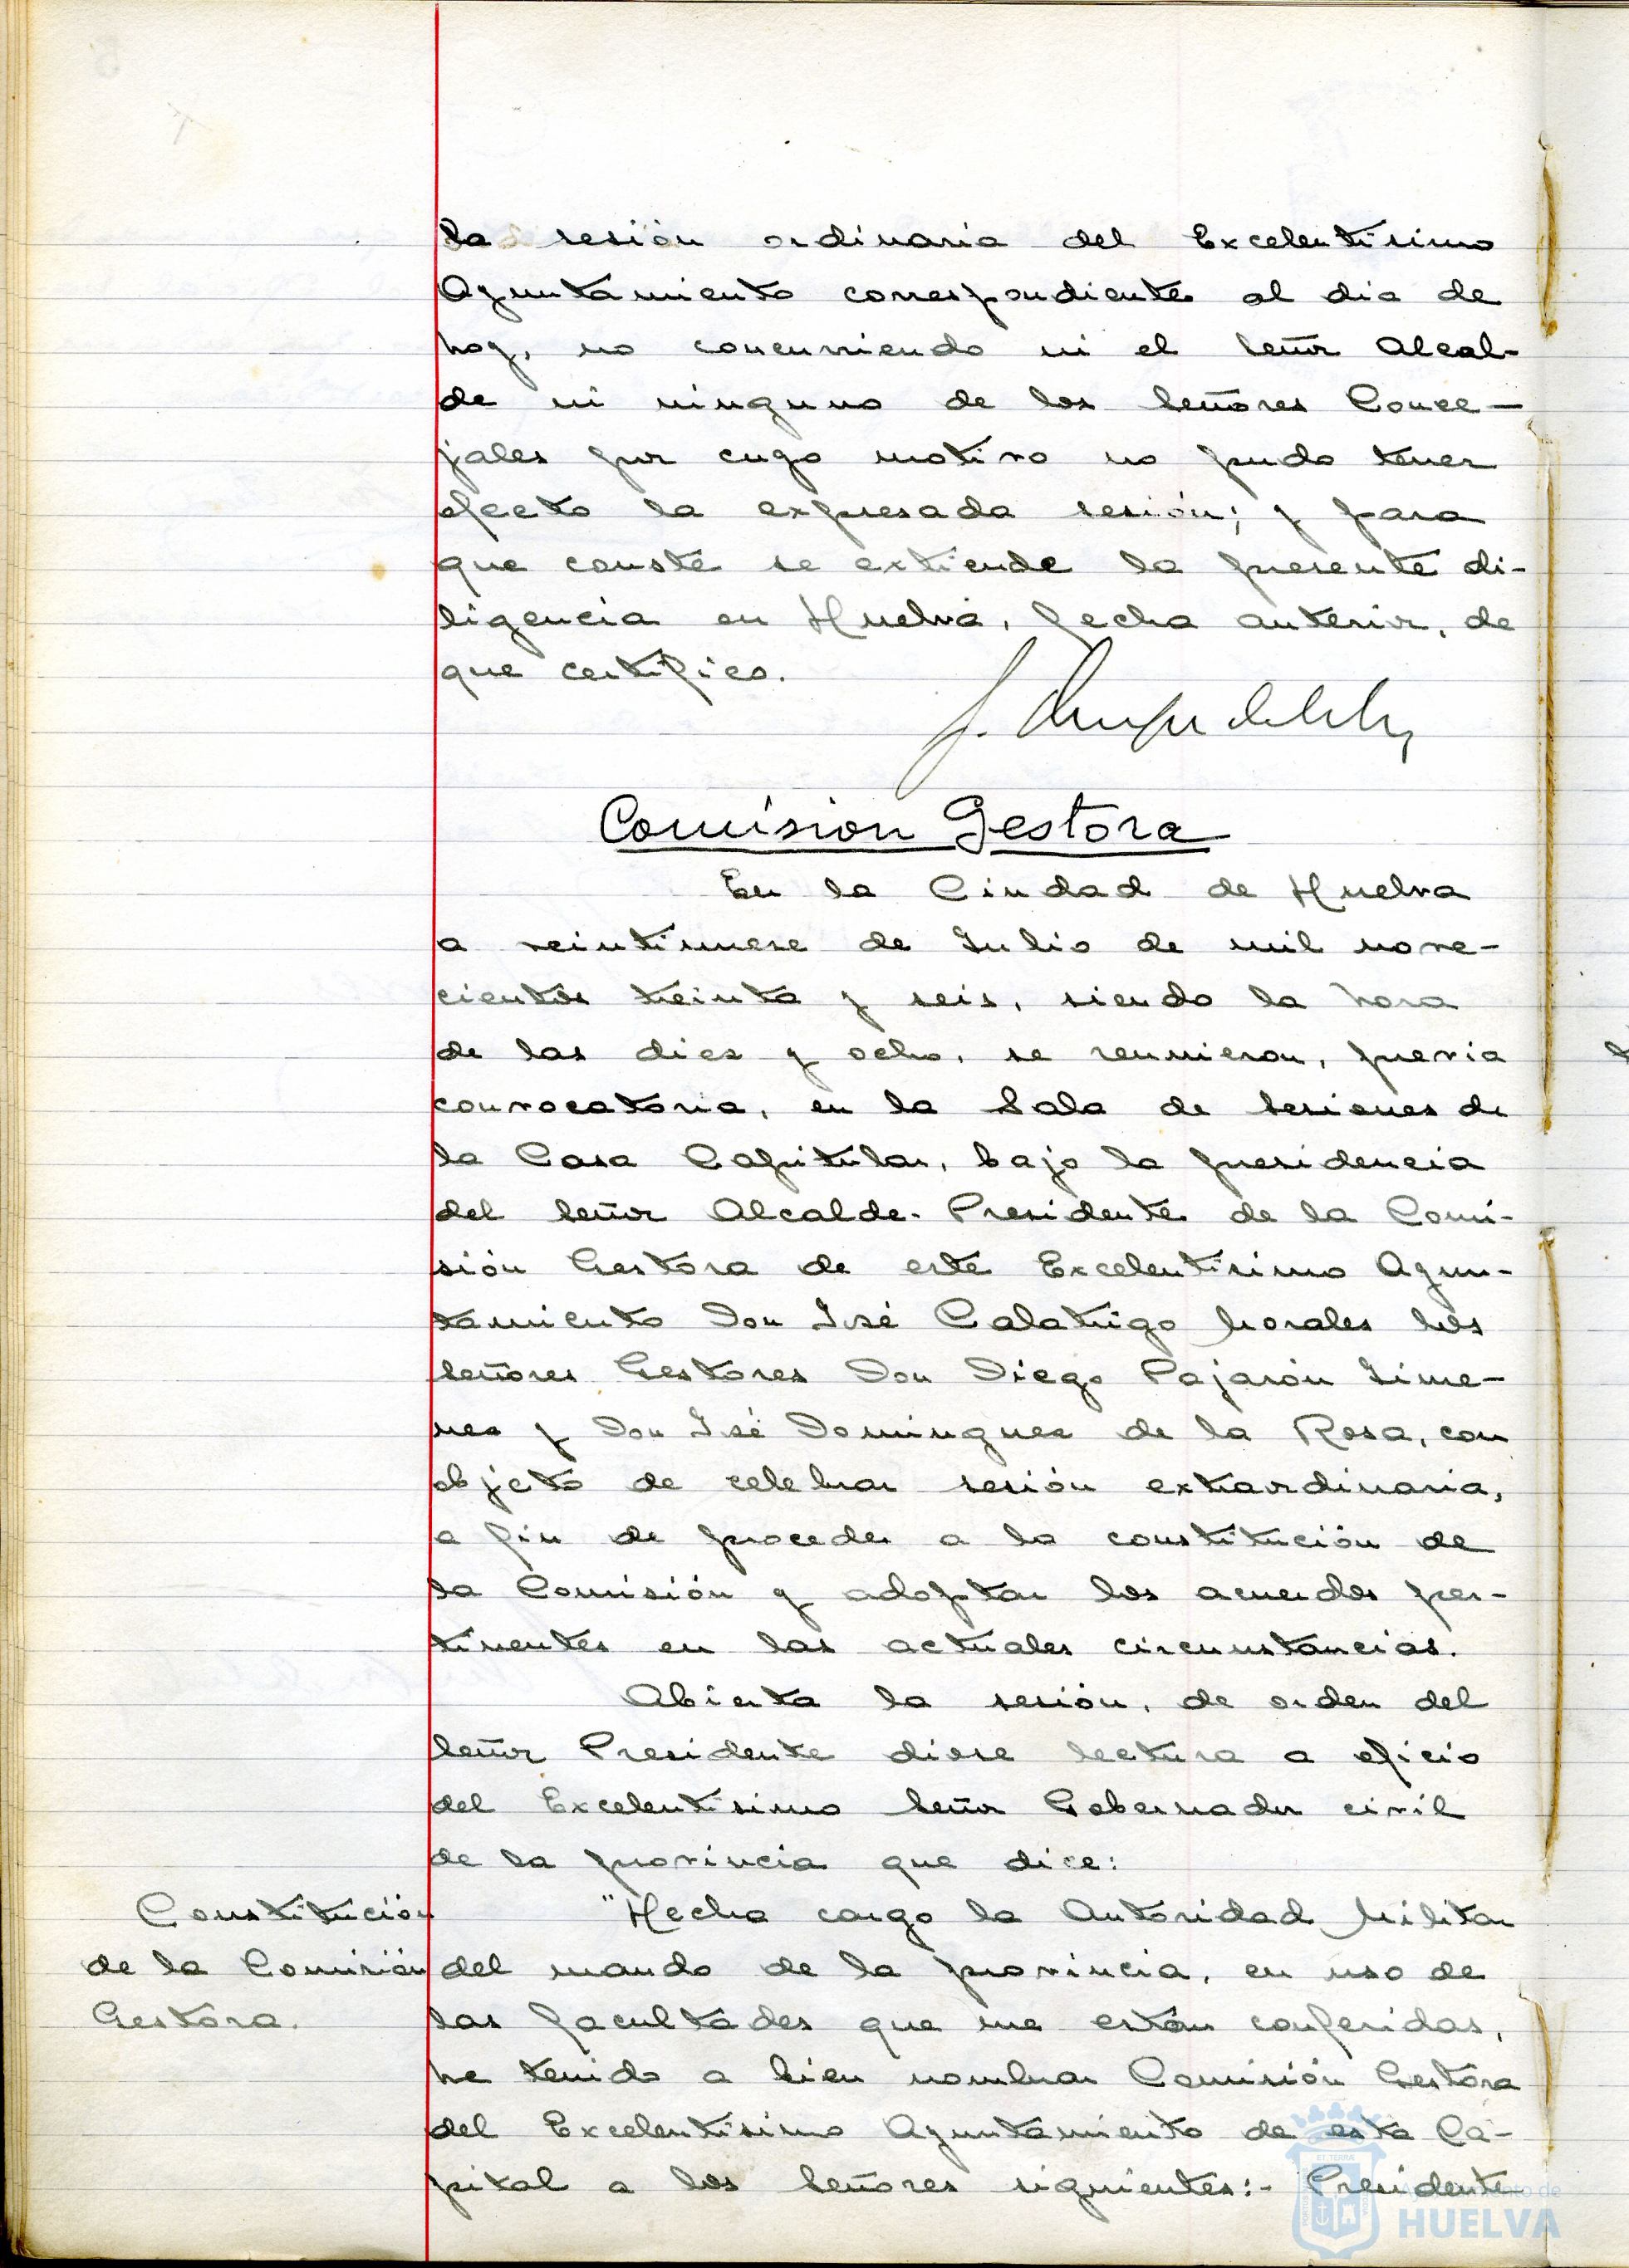 la sesión ordinaria del Excelentísimo
Ayuntamiento correspondiente al dia de
hoy, no concurriendo ni el Señor Alcal-
de ni ninguno de los Señores Conce-
jales por cuyo motivo no pudo tener
efecto la expresada sesión; y para
que conste se extiende la presente di-
ligencia en Huelva, fecha anterior, de
que certifico.
Comision Gestora
En la Ciudad de Huelva
a veintinueve de Julio de mil nove-
cientos treinta y seis, siendo la hora
de las diez y ocho, se reunieron, previa
convocatoria, en la Sala de Sesiones de
la Casa Capitular, bajo la presidencia
del Señor Alcalde-Presidente de la Comi-
sión Gestora de este Excelentísimo Ayun-
tamiento Don José Calatrigo Morales los
Señores Gestores Don Diego Pajarón Jime-
nez y Don José Dominguez de la Rosa, con
objeto de celebrar sesión extraordinaria,
a fin de proceder a la constitución de
la Comisión y adoptar los acuerdos per-
tinentes en las actuales circunstancias.
Abierta la sesión, de orden del
Señor Presidente diose lectura a oficio
del Excelentísimo Señor Gobernador civil
de la provincia que dice:
Constitución
de la Comisión
Gestora.
"Hecha cargo la Autoridad Militar
del mando de la provincia, en uso de
las facultades que me están conferidas,
he tenido a bien nombrar Comisión Gestora
del Excelentísimo Ayuntamiento de esta Ca-
pital a los Señores siguientes:- Presidente
Ayuntamiento de
HUELVA